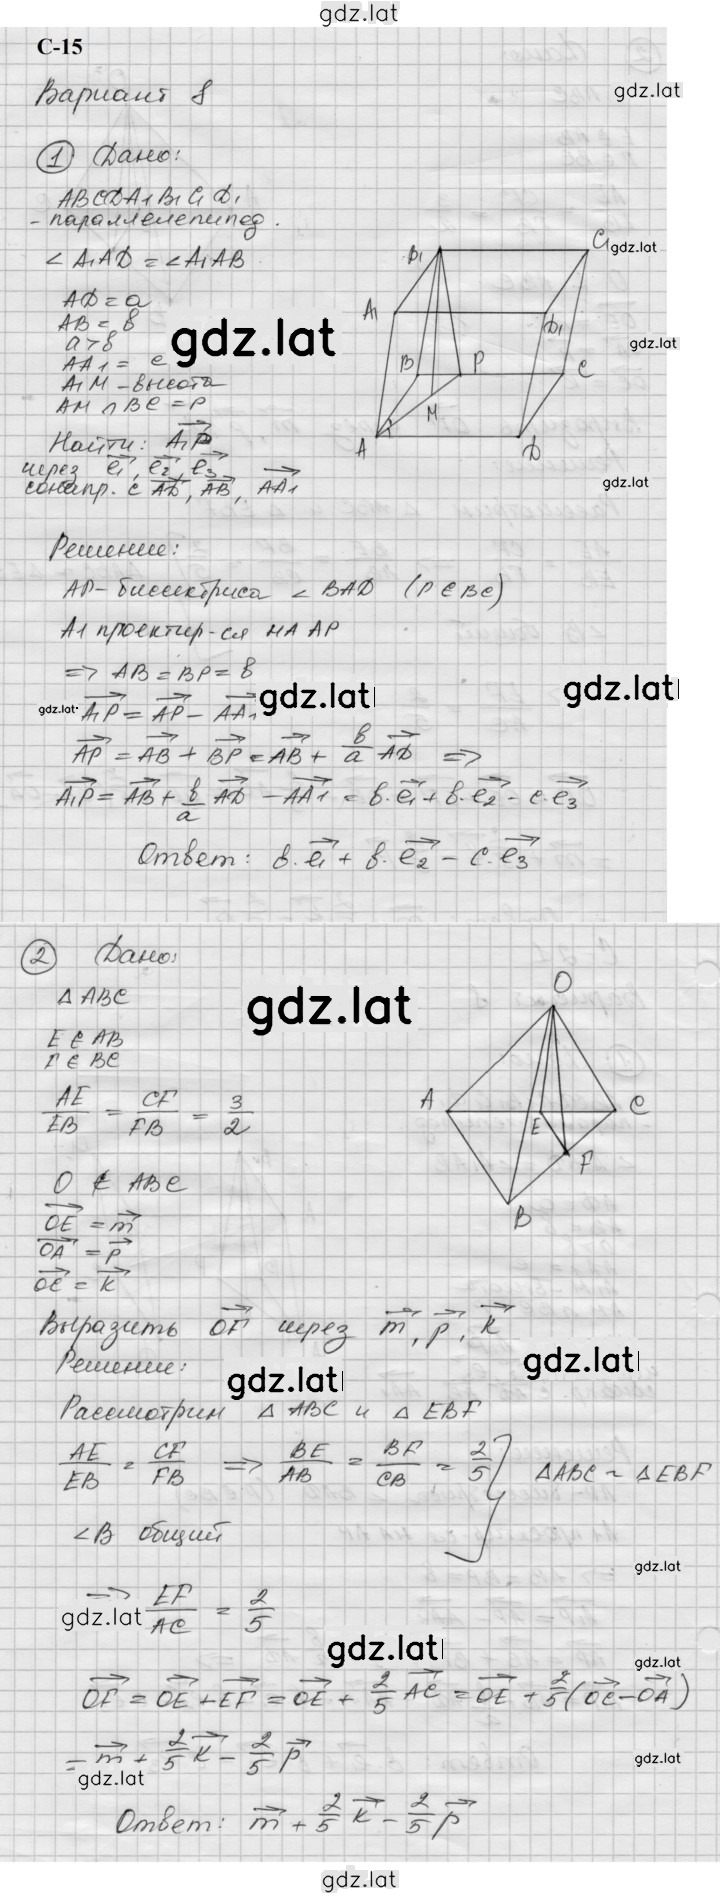 gdz.lat
С-15
Вариант 8
gdz.lat
1 Дано:
ABCDA1B1C1D1
- параллелепипед.
∠A1AD = ∠A1AB
AD = a
AB = в
a > в
AA1 = c
A1M - высота
AM ∩ BC = P
Найти: A1P
через e1, e2, e3
сонапр. с AD, AB, AA1
B1 C1 gdz.lat
A1 D1
gdz.lat
B P C
M
A D
gdz.lat
Решение:
AP - биссектриса ∠BAD (P ∈ BC)
A1 проектир-ся НА AP
=> AB = BP = в
gdz.lat gdz.lat
gdz.lat A1P = AP - AA1
AP = AB + BP = AB + в/a AD =>
A1P = AB + в/a AD - AA1 = в·e1 + в·e2 - c·e3
Ответ: в·e1 + в·e2 - c·e3
2 Дано:
△ ABC
gdz.lat
E ∈ AB
F ∈ BC
AE/EB = CF/FB = 3/2
O ∉ ABC
OE = m
OA = p
OC = k
O
A C
E
F
B
Выразить OF через m, p, k
Решение:
gdz.lat gdz.lat
Рассмотрим △ ABC и △ EBF
AE/EB = CF/FB => BE/AB = BF/CB = 2/5 } △ABC ~ △EBF
∠B общий
gdz.lat
=> EF/AC = 2/5
gdz.lat
gdz.lat
gdz.lat
OF = OE + EF = OE + 2/5 AC = OE + 2/5 (OC - OA)
= m + 2/5 k - 2/5 p
gdz.lat
gdz.lat
Ответ: m + 2/5 k - 2/5 p
gdz.lat